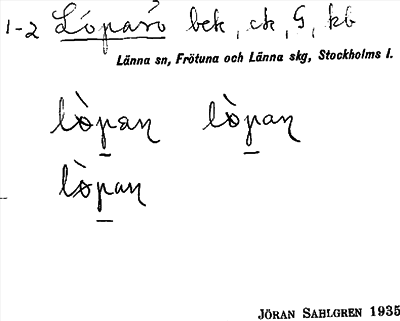 1-2 Löparö bek, ek, G, kb
Länna sn, Frötuna och Länna skg, Stockholms l.
lò̀pan lò̀pan
lò̀pan
JÖRAN SAHLGREN 1935